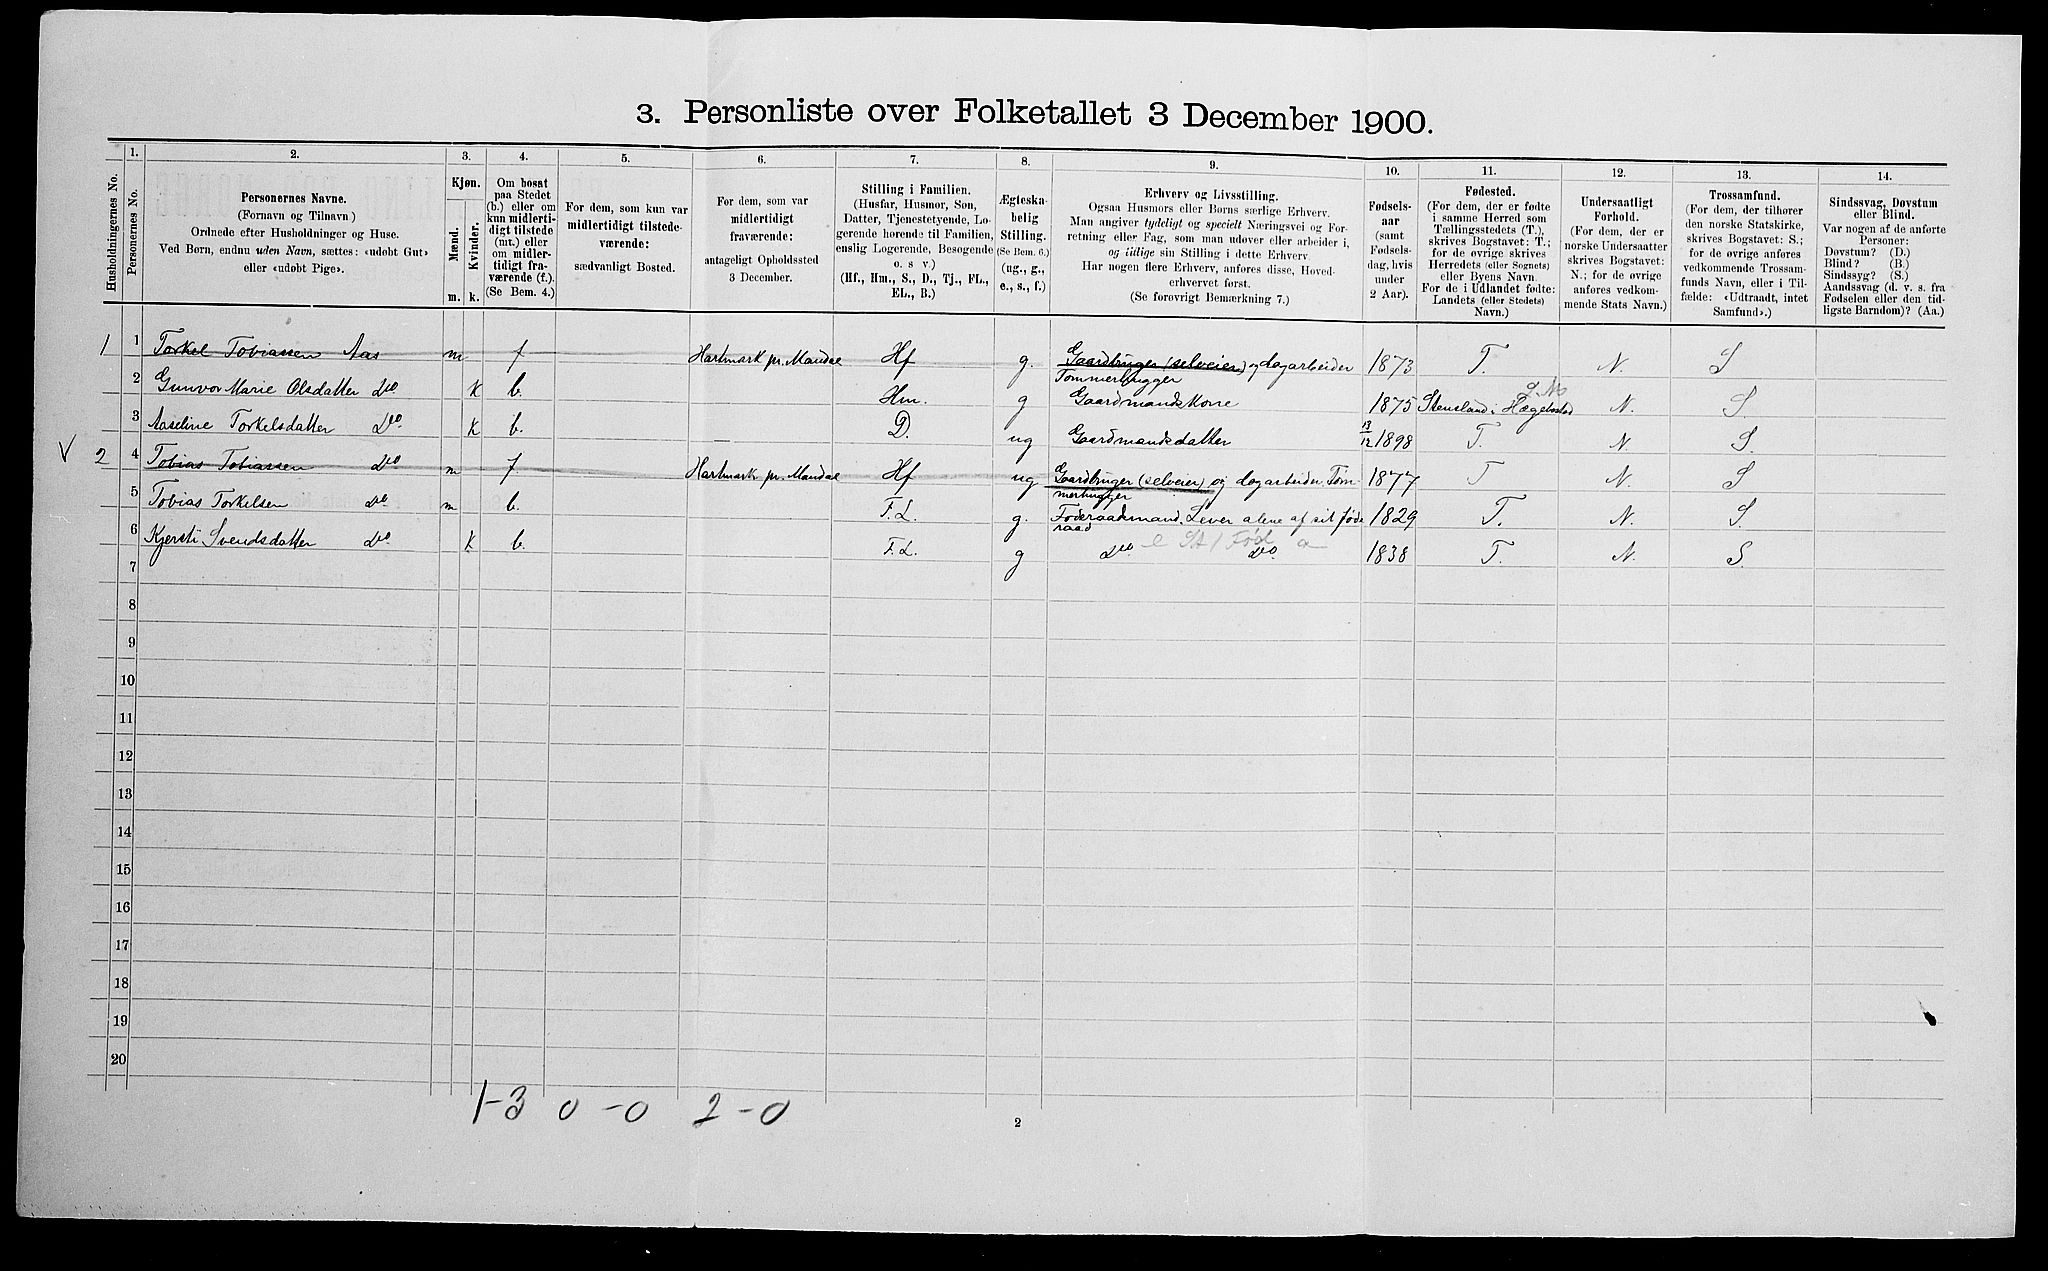 3. Personliste over Folketallet 3 December 1900.
1. 2. 3. 4. 5. 6. 7. 8. 9. 10. 11. 12. 13. 14.
Husholdningernes No.
Personernes No.
Personernes Navne.
(Fornavn og Tilnavn)
Ordnede efter Husholdninger og Huse.
Ved Børn, endnu uden Navn, sættes: «udøbt Gut»
eller «udøbt Pige».
Kjøn.
Mænd.
Kvinder.
m. k.
Om bosat
paa Stedet
(b.) eller om
kun midlerti-
digt tilstede
(mt.) eller
om midler-
tidigt fra-
værende (f.).
(Se Bem. 4.)
For dem, som kun var
midlertidigt tilstede-
værende:
sædvanligt Bosted.
For dem, som var
midlertidigt
fraværende:
antageligt Opholdssted
3 December.
Stilling i Familien.
(Husfar, Husmor, Søn,
Datter, Tjenestetyende, Lo-
gerende hørende til Familien,
enslig Logerende, Besøgende
o. s v.)
(Hf., Hm., S., D., Tj., FL.,
EL., B.)
Ægteska-
belig
Stilling.
(Se Bem. 6.)
(ug., g.,
e., s., f.)
Erhverv og Livsstilling.
Ogsaa Husmors eller Børns særlige Erhverv.
Man angiver tydeligt og specielt Næringsvei og For-
retning eller Fag, som man udøver eller arbeider i,
og iidlige sin Stilling i dette Erhverv
Har nogen flere Erhverv, anføres disse, Hoved-
erhvervet først.
(Se forøvrigt Bemærkning 7.)
Fødsels-
aar
(samt
Fødsels-
dag, hvis
under
2 Aar).
Fødested.
(For dem, der er fødte
i samme Herred som
Tællingsstedets (T.),
skrives Bogstavet: T.;
for de øvrige skrives
Herredets (eller Sognets)
eller Byens Navn.
For de i Udlandet fødte:
Landets (eller Stedets)
Navn.)
Undersaatligt
Forhold.
(For dem, der er
norske Undersaatter
skrives Bogstavet:
N.; for de øvrige
anføres vedkom-
mende Stats Navn.)
Trossamfund.
(For dem, der tilhører
den norske Statskirke,
skrives Bogstavet: S.;
for de øvrige anføres
vedkommende Trossam-
funds Navn, eller i Til-
fælde: «Udtraadt, intet
Samfund».)
Sindssvag, Døvstum
eller Blind.
Var nogen af de anførte
Personer:
Døvstum? (D.)
Blind? (B.)
Sindssyg? (S.)
Aandssvag (d. v. s. fra
Fødselen eller den tid-
ligste Barndom)? (Aa.)
1 1 Torkel Tobiassen Aas m f Hartmark pr. Mandal Hf g. Gaardbruger (selveier) og dagarbeider 1873 T. N. S
Tømmerhugger
2 Gunvor Marie Olsdatter Do. k b. Hm. g Gaardmandskone 1875 Stensland i Hægebostad N. S
3 Aaseline Torkelsdatter Do. k b. D. ug Gaardmandsdatter 13/12 1898 T. N S.
V 2 4 Tobias Tobiassen Do m f Hartmark pr. Mandal Hf ug Gaardbruger (selveier) og dagarbeider Tøm- 1877 T N. S
merhugger
5 Tobias Torkelsen Do m b. F.L. g. Føderaadsmand. Lever alene af sit føde 1829 T. N. S.
raad
6 Kjersti Svendsdatter Do. k b. F.L. g Do Do. 1838 T. N. S.
7
8
9
10
11
12
13
14
15
16
17
18
19
20
1-3 0-0 2-0
2